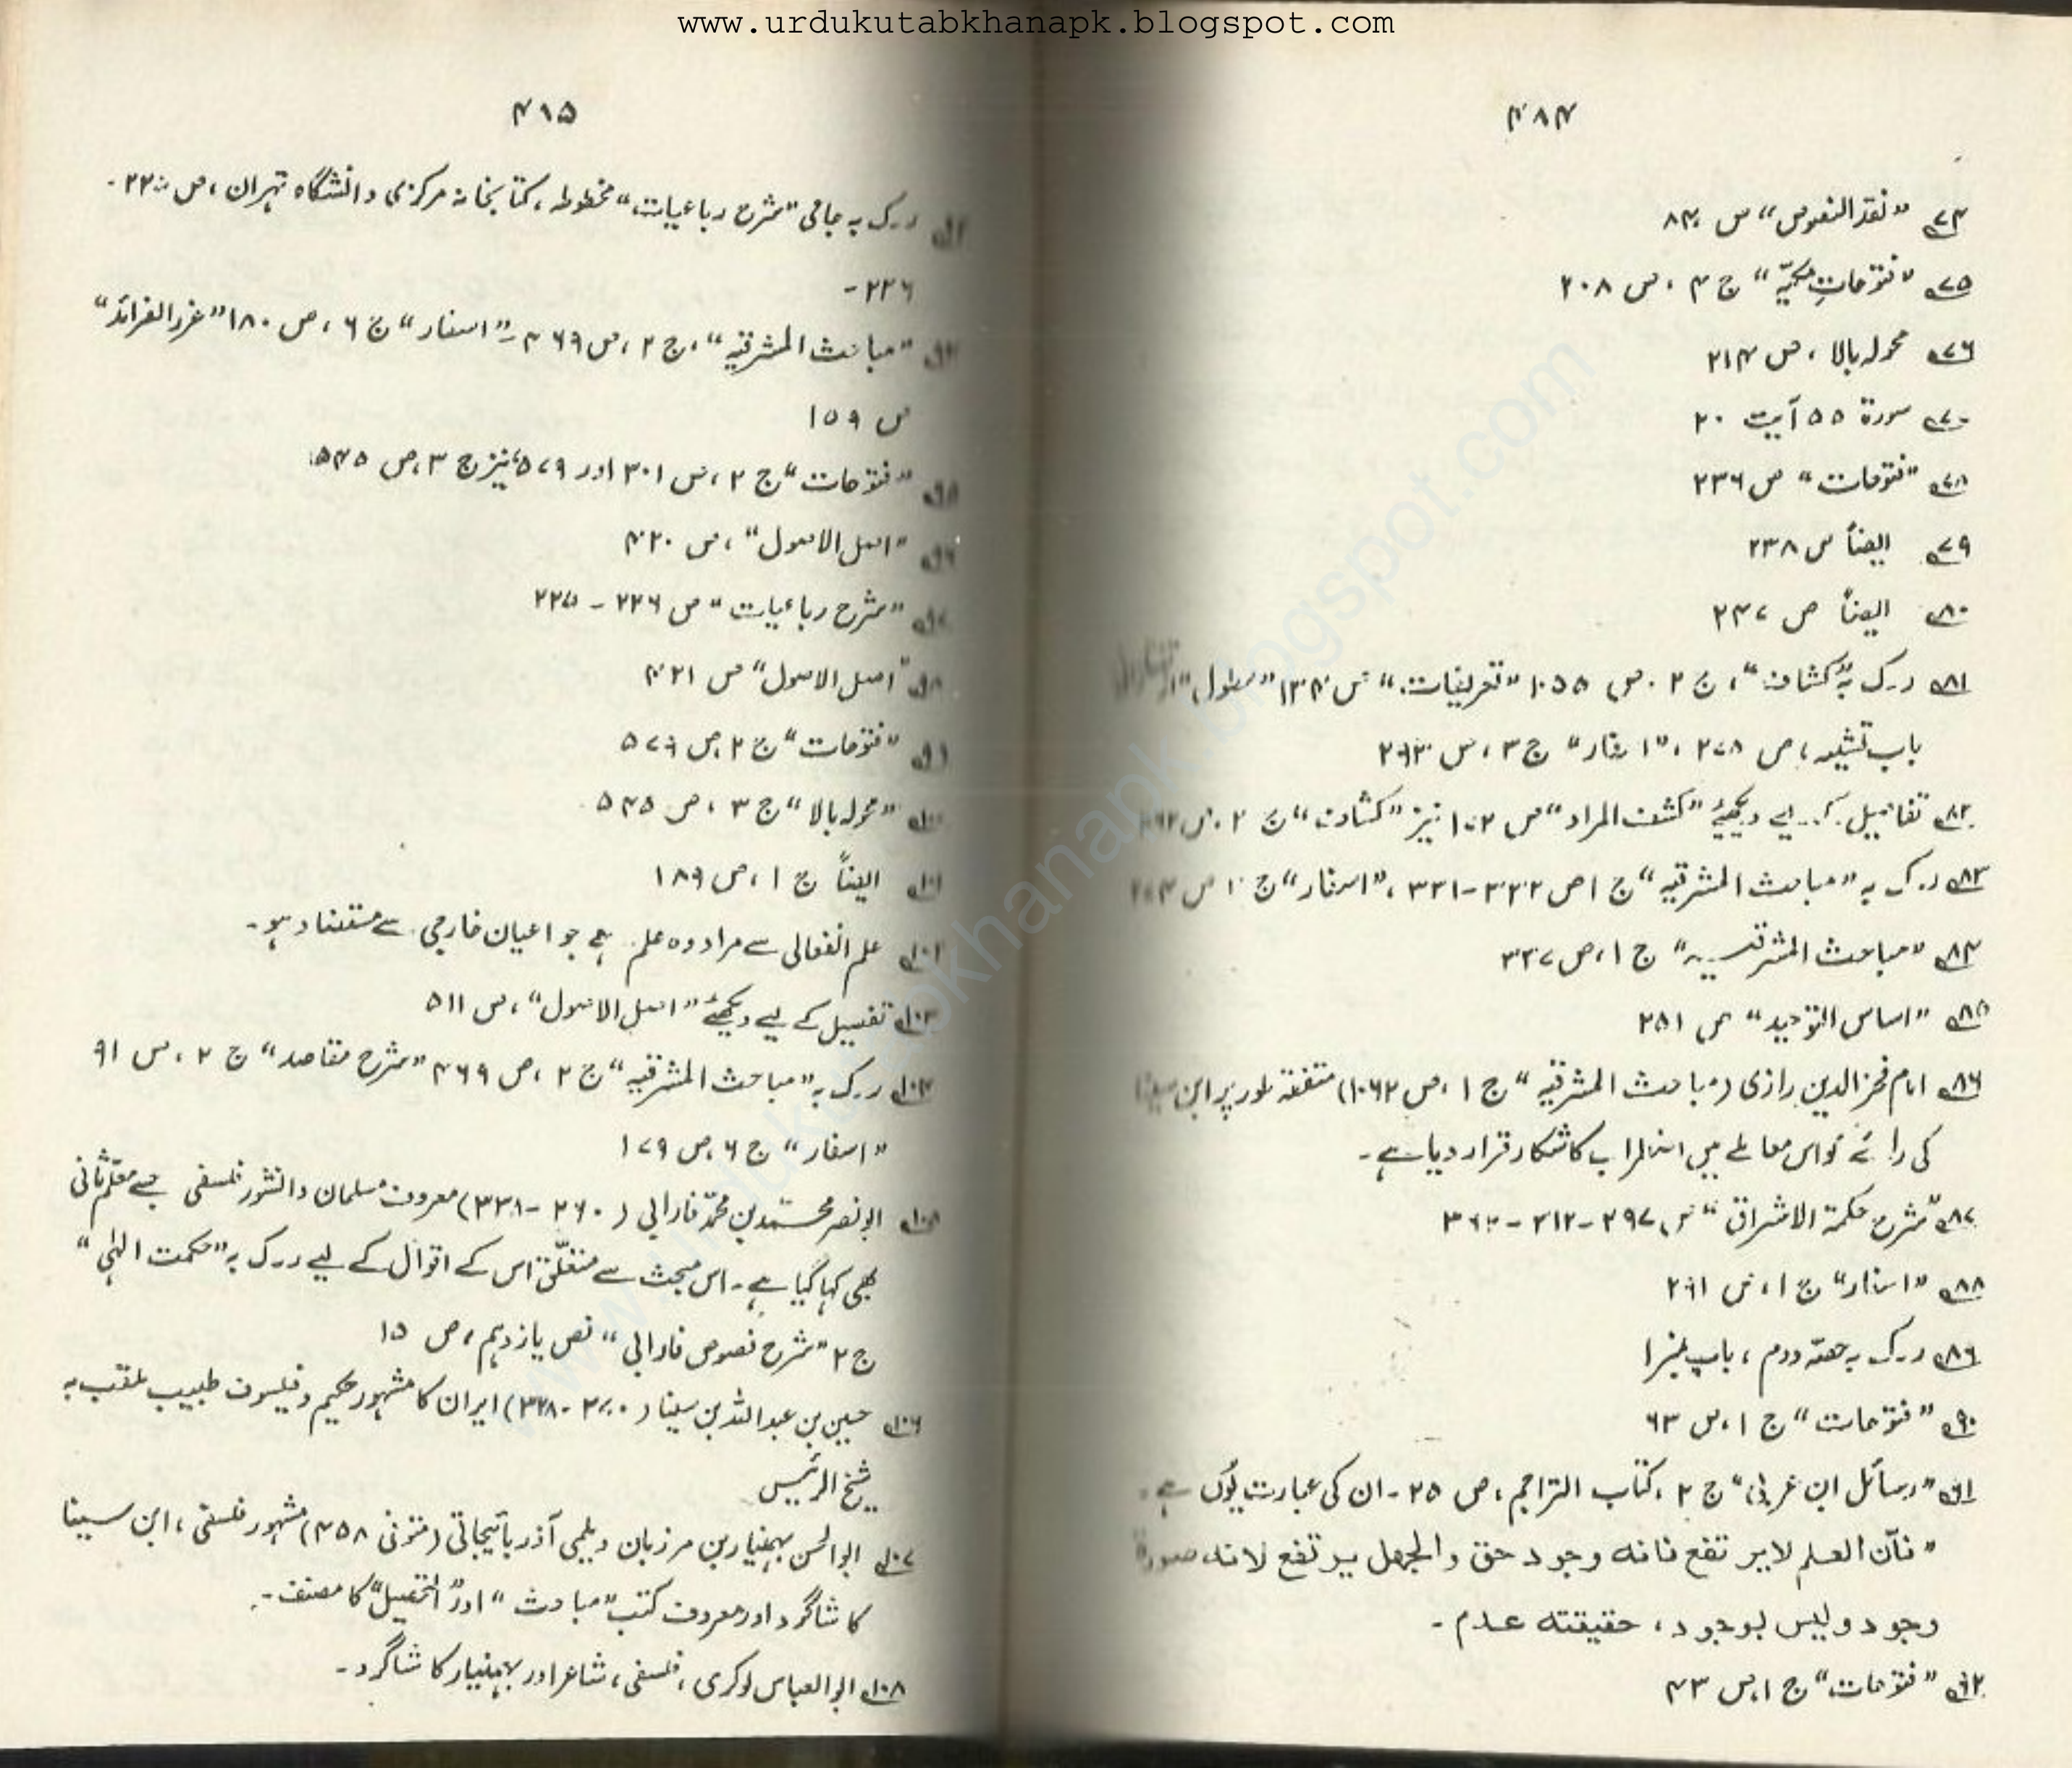 www.urdukutabkhanapk.blogspot.com
۴۸۴
۷۴ "نقد النصوص" ص ۸۴
۷۵ "فتوحاتِ مکیّہ" ج ۴، ص ۲۰۸
۷۶ محولہ بالا، ص ۲۱۴
۷۷ سورۃ ۵۵ آیت ۲۰
۷۸ "فتوحات" ص ۲۳۶
۷۹ ایضاً ص ۲۳۸
۸۰ ایضاً ص ۲۴۷
۸۱ ر۔ک بہ "کشاف"، ج ۲، ص ۱۰۵۵ "تعریفات" ص ۱۳۴ "مطول"
باب تشبیہ، ص ۲۷۸، "اسفار" ج ۳، ص ۲۹۳
۸۲ تفاصیل کے لیے دیکھئے "کشف المراد" ص ۱۷۲ نیز "کشاف" ج ۲، ص
۸۳ ر۔ک بہ "مباحث المشرقیہ" ج ۱ ص ۳۲۲-۳۳۱، "اسفار" ج ۱ ص
۸۴ "مباحث المشرقیہ" ج ۱، ص ۳۲۷
۸۵ "اساس التوحید" ص ۲۵۱
۸۶ امام فخر الدین رازی (مباحث المشرقیہ" ج ۱، ص ۱۰۶۲) متفقہ طور پر ابن سینا
کی رائے کو اس معاملے میں اضطراب کا شکار قرار دیا ہے۔
۸۷ "شرح حکمۃ الاشراق" ص ۲۹۷-۳۱۲-۳۶۳
۸۸ "اسفار" ج ۱، ص ۲۹۱
۸۹ ر۔ک بہ حصّہ دوم، باب نمبر ۱
۹۰ "فتوحات" ج ۱، ص ۶۳
۹۱ "رسائل ابن عربی" ج ۲، کتاب التراجم، ص ۲۵۔ ان کی عبارت یُوں ہے۔
"فأن العلم لا یرتفع فانه وجود حق والجهل یرتفع لانه صورة
وجود ولیس بوجود، حقیقته عدم۔
۹۲ "فتوحات" ج ۱، ص ۴۳
۴۱۵
ر۔ک بہ جامی "شرح رباعیات" مخطوطہ، کتابخانہ مرکزی دانشگاہ تہران، ص ۲۲۵-
۲۲۶-
"مباحث المشرقیہ"، ج ۲، ص ۴۶۹۔ "اسفار" ج ۶، ص ۱۸۰ "غرر الفرائد"
ص ۱۵۹
"فتوحات" ج ۲، ص ۳۰۱ اور ۵۷۹، نیز ج ۳، ص ۵۴۵
"اصل الاصول"، ص ۴۲۰
"شرح رباعیات" ص ۲۲۶-۲۲۵
۹۸ "اصل الاصول" ص ۴۲۱
۹۹ "فتوحات" ج ۲، ص ۵۷۹
۱۰۰ "محولہ بالا" ج ۳، ص ۵۴۵
۱۰۱ ایضاً ج ۱، ص ۱۸۹
۱۰۲ علم انفعالی سے مراد وہ علم ہے جو اعیان خارجی سے مستفاد ہو۔
۱۰۳ تفصیل کے لیے دیکھئے "اصل الاصول"، ص ۵۱۱
۱۰۴ ر۔ک بہ "مباحث المشرقیہ" ج ۲، ص ۴۶۹ "شرح مقاصد" ج ۲، ص ۹۱
"اسفار" ج ۶، ص ۱۷۹
۱۰۵ ابو نصر محمّد بن محمّد فارابی (۲۶۰-۳۳۸) معروف مسلمان دانشور فلسفی جسے معلّم ثانی
بھی کہا گیا ہے۔ اس مبحث سے متعلّق اس کے اقوال کے لیے ر۔ک بہ "حکمت الہٰی"
ج ۲ "شرح نصوص فارابی" نص یازدہم، ص ۱۵
۱۰۶ حسین بن عبداللہ بن سینا (۳۷۰-۴۲۸) ایران کا مشہور حکیم و فیلسوف طبیب ملقب بہ
شیخ الرئیس
۱۰۷ ابوالحسن بہمنیار بن مرزبان دیلمی آذربائیجانی (متوفی ۴۵۸) مشہور فلسفی، ابن سینا
کا شاگرد اور معروف کتب "مباحث" اور "التحصیل" کا مصنف۔
۱۰۸ ابوالعباس لوکری، فلسفی، شاعر اور بہمنیار کا شاگرد۔